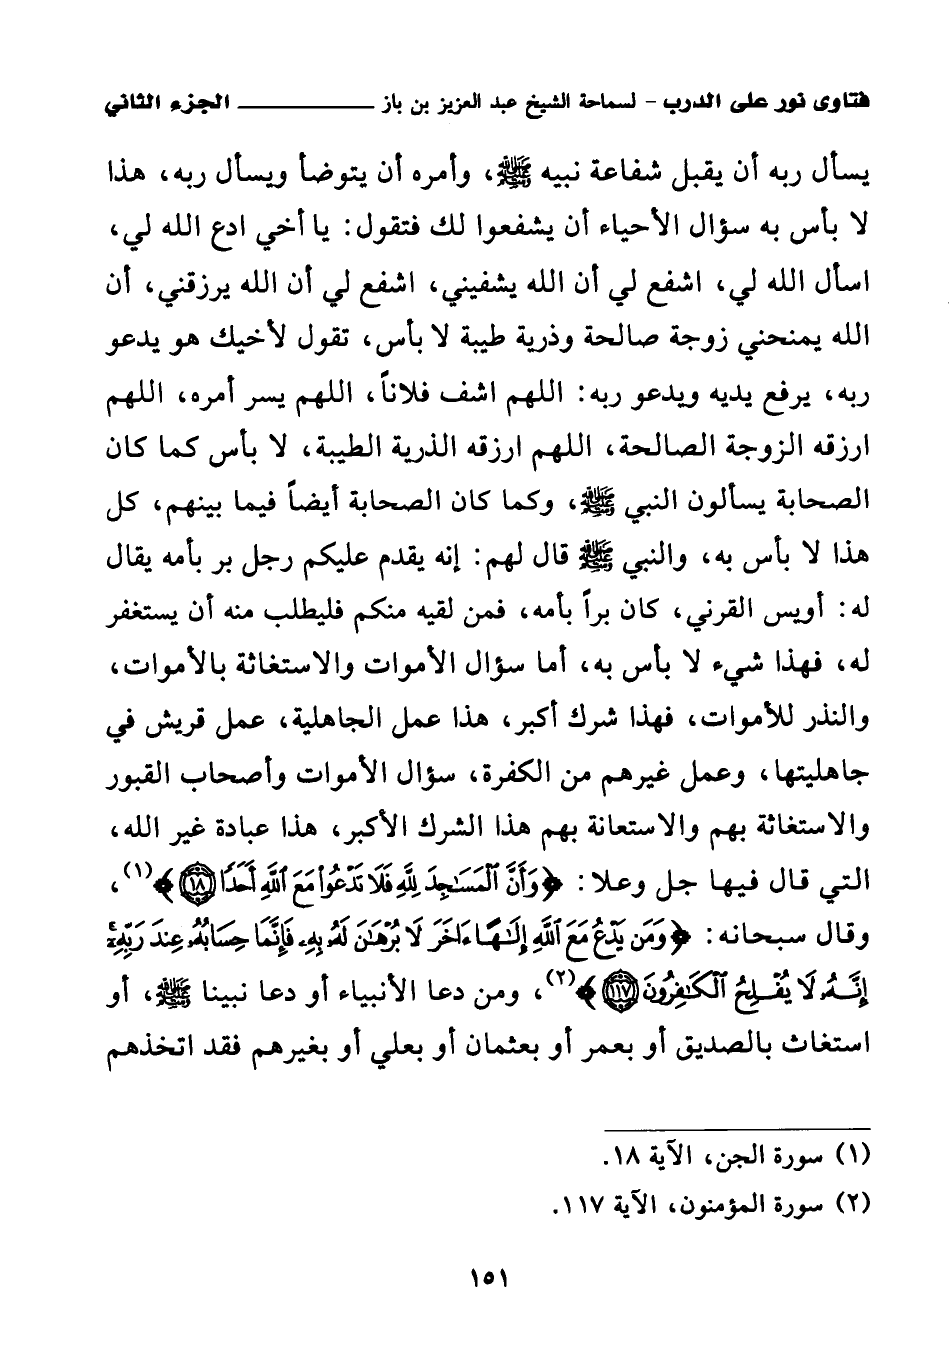 فتاوى نور على الدرب - لسماحة الشيخ عبد العزيز بن باز ــــــــــــــ الجزء الثاني
يسأل ربه أن يقبل شفاعة نبيه ﷺ، وأمره أن يتوضأ ويسأل ربه، هذا
لا بأس به سؤال الأحياء أن يشفعوا لك فتقول: يا أخي ادع الله لي،
اسأل الله لي، اشفع لي أن الله يشفيني، اشفع لي أن الله يرزقني، أن
الله يمنحني زوجة صالحة وذرية طيبة لا بأس، تقول لأخيك هو يدعو
ربه، يرفع يديه ويدعو ربه: اللهم اشف فلاناً، اللهم يسر أمره، اللهم
ارزقه الزوجة الصالحة، اللهم ارزقه الذرية الطيبة، لا بأس كما كان
الصحابة يسألون النبي ﷺ، وكما كان الصحابة أيضاً فيما بينهم، كل
هذا لا بأس به، والنبي ﷺ قال لهم: إنه يقدم عليكم رجل بر بأمه يقال
له: أويس القرني، كان براً بأمه، فمن لقيه منكم فليطلب منه أن يستغفر
له، فهذا شيء لا بأس به، أما سؤال الأموات والاستغاثة بالأموات،
والنذر للأموات، فهذا شرك أكبر، هذا عمل الجاهلية، عمل قريش في
جاهليتها، وعمل غيرهم من الكفرة، سؤال الأموات وأصحاب القبور
والاستغاثة بهم والاستعانة بهم هذا الشرك الأكبر، هذا عبادة غير الله،
التي قال فيها جل وعلا: ﴿وَأَنَّ ٱلْمَسَٰجِدَ لِلَّهِ فَلَا تَدْعُوا۟ مَعَ ٱللَّهِ أَحَدًا ١٨﴾(١)،
وقال سبحانه: ﴿وَمَن يَدْعُ مَعَ ٱللَّهِ إِلَٰهًا ءَاخَرَ لَا بُرْهَٰنَ لَهُۥ بِهِۦ فَإِنَّمَا حِسَابُهُۥ عِندَ رَبِّهِۦٓ
إِنَّهُۥ لَا يُفْلِحُ ٱلْكَٰفِرُونَ ١١٧﴾(٢)، ومن دعا الأنبياء أو دعا نبينا ﷺ، أو
استغاث بالصديق أو بعمر أو بعثمان أو بعلي أو بغيرهم فقد اتخذهم
(١) سورة الجن، الآية ١٨.
(٢) سورة المؤمنون، الآية ١١٧.
١٥١